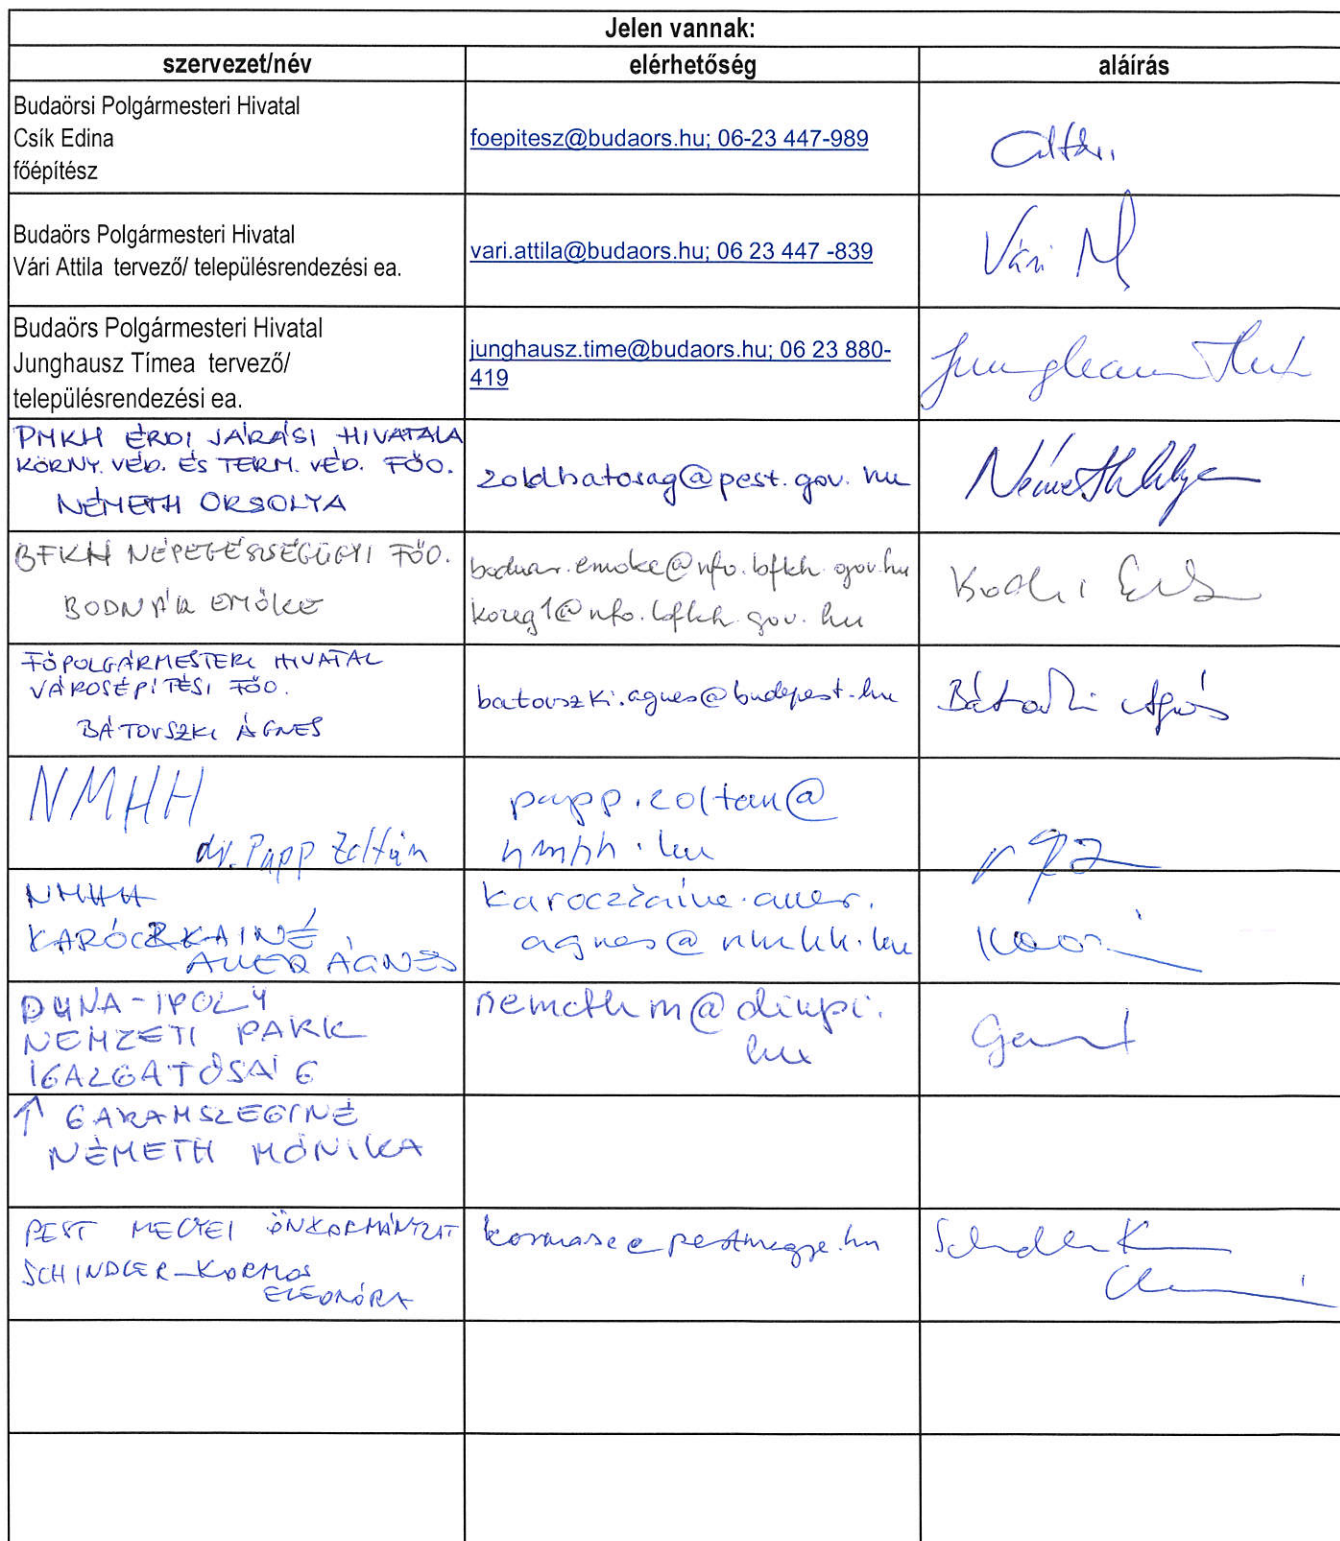 Jelen vannak:
szervezet/név elérhetőség aláírás
Budaörsi Polgármesteri Hivatal
Csík Edina
főépítész
foepitesz@budaors.hu; 06-23 447-989
Budaörs Polgármesteri Hivatal
Vári Attila tervező/ településrendezési ea.
vari.attila@budaors.hu; 06 23 447 -839
Vári
Budaörs Polgármesteri Hivatal
Junghausz Tímea tervező/
településrendezési ea.
junghausz.time@budaors.hu; 06 23 880-
419
PMKH ÉRDI JÁRÁSI HIVATALA
KÖRNY. VÉD. ÉS TERM. VÉD. FŐO.
NÉMETH ORSOLYA
zoldhatosag@pest.gov.hu
BFKH NÉPEGÉSZSÉGÜGYI FŐO.
BODNÁR EMŐKE
bodnar.emoke@nfo.bfkh.gov.hu
kozeg1@nfo.bfkh.gov.hu
FŐPOLGÁRMESTERI HIVATAL
VÁROSÉPÍTÉSI FŐO.
BÁTOVSZKI ÁGNES
batovszki.agnes@budapest.hu
Bátovszki Ágnes
NMHH
dr. Papp Zoltán
papp.zoltan@
nmhh.hu
NMHH
KARÓCZKAINÉ
AUER ÁGNES
karoczkaine.auer.
agnes@nmhh.hu
DUNA-IPOLY
NEMZETI PARK
IGAZGATÓSÁG
nemethm@dinpi.
hu
↑ GARAMSZEGINÉ
NÉMETH MÓNIKA
PEST MEGYEI ÖNKORMÁNYZAT
SCHINDLER-KORMOS
ELEONÓRA
kormose@pestmegye.hu